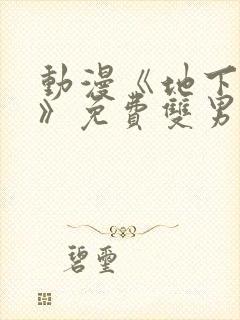 動漫《地下
》免費雙男
碧璽